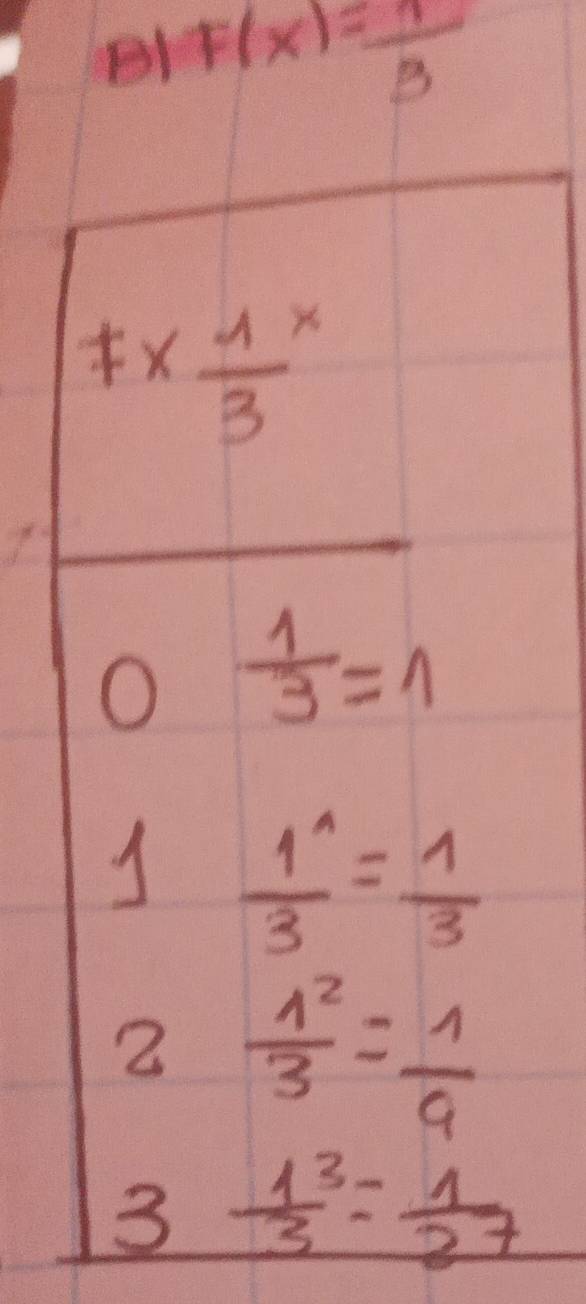 B) F(x) = 1/3
Fx 1/3 x
0 1/3 = 1
1 1^1/3 = 1/3
2 1^2/3 = 1/9
3 1^3/3 = 1/27